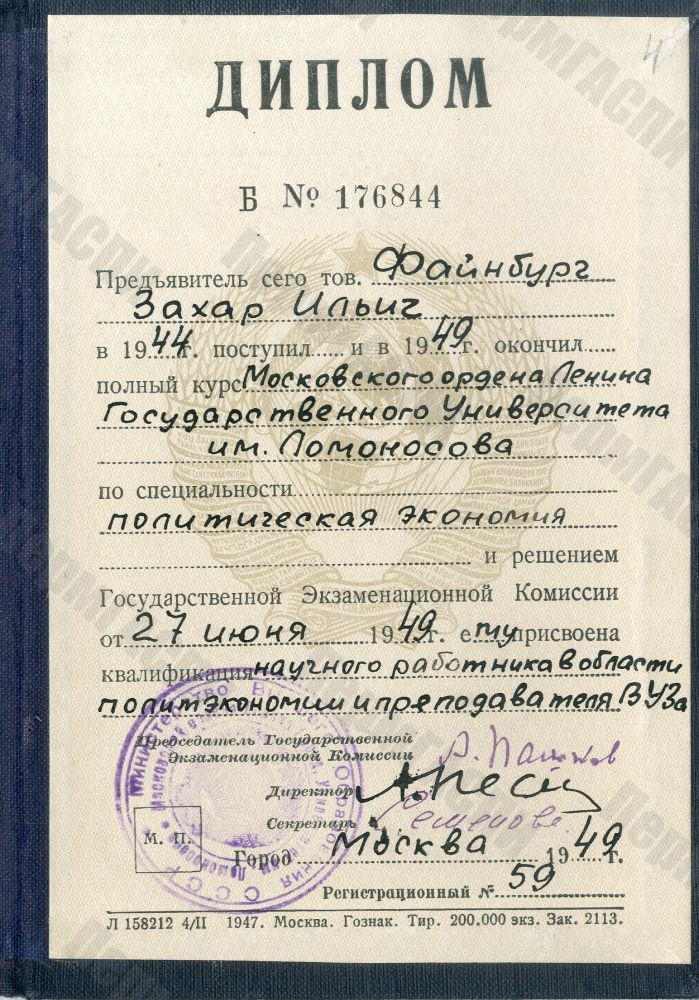 4
ДИПЛОМ
Б № 176844
Предъявитель сего тов. Файнбург
Захар Ильич
в 1944 г. поступил и в 1949 г. окончил
полный курс Московского ордена Ленина
Государственного Университета
им. Ломоносова
по специальности
политическая экономия
и решением
Государственной Экзаменационной Комиссии
от 27 июня 1949 г. ему присвоена
квалификация научного работника в области
политэкономии и преподавателя ВУЗа
Председатель Государственной
Экзаменационной Комиссии
Директор
Секретарь
М. П.
Город Москва 1949 г.
Регистрационный № 59
Л 158212 4/II 1947. Москва. Гознак. Тир. 200.000 экз. Зак. 2113.
Министерство Высшего Образования СССР
ПермГАСПИ